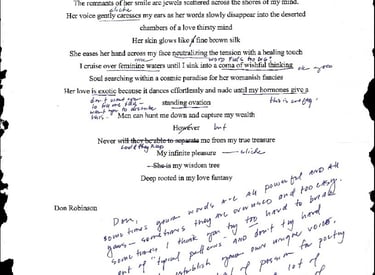 The remnants of her smile are jewels scattered across the shores of my mind.
cliche
Her voice gently caresses my ears as her words slowly disappear into the deserted
chambers of a love thirsty mind
Her skin glows like fine brown silk
She eases her hand across my face neutralizing the tension with a healing touch
I cruise over feminine waters until I sink into a coma of wishful thinking
Soul searching within a cosmic paradise for her womanish fancies
Her love is exotic because it dances effortlessly and nude until my hormones give a
standing ovation
this is
Men can hunt me down and capture my wealth
However but
Never will they be able to separate me from my true treasure
My infinite pleasure — cliche
She is my wisdom tree
Deep rooted in my love fantasy
Don Robinson
Don,
sometimes your words are all powerful and all
yours – sometimes they are overused and too easy.
sometimes I think you try too hard to break
out of "typical" patterns and don't try hard
establish your own unique voice.
of passion for poetry
a lot of